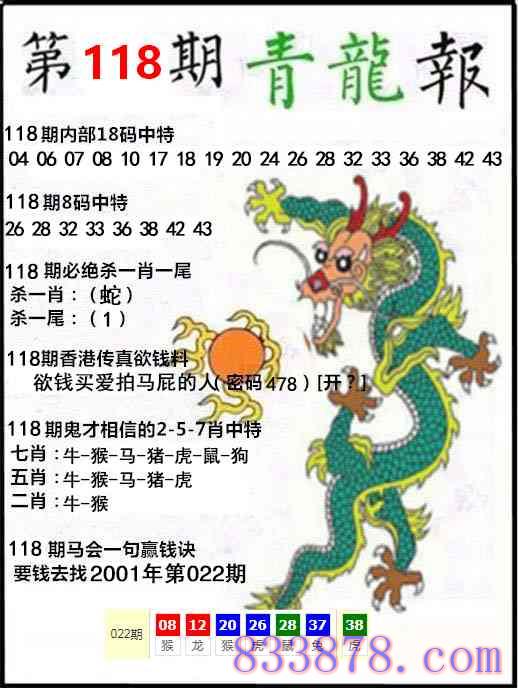 第118期青龍報
118期内部18码中特
04 06 07 08 10 17 18 19 20 24 26 28 32 33 36 38 42 43
118期8码中特
26 28 32 33 36 38 42 43
118 期必绝杀一肖一尾
杀一肖：（蛇）
杀一尾：（1）
118期香港传真欲钱料
欲钱买爱拍马屁的人（密码478）[开？]
118期鬼才相信的2-5-7肖中特
七肖：牛-猴-马-猪-虎-鼠-狗
五肖：牛-猴-马-猪-虎
二肖：牛-猴
118 期马会一句赢钱诀
要钱去找2001年第022期
022期 08 12 20 26 28 37 38
猴 龙 猴 虎 鼠 兔 虎
833878.com